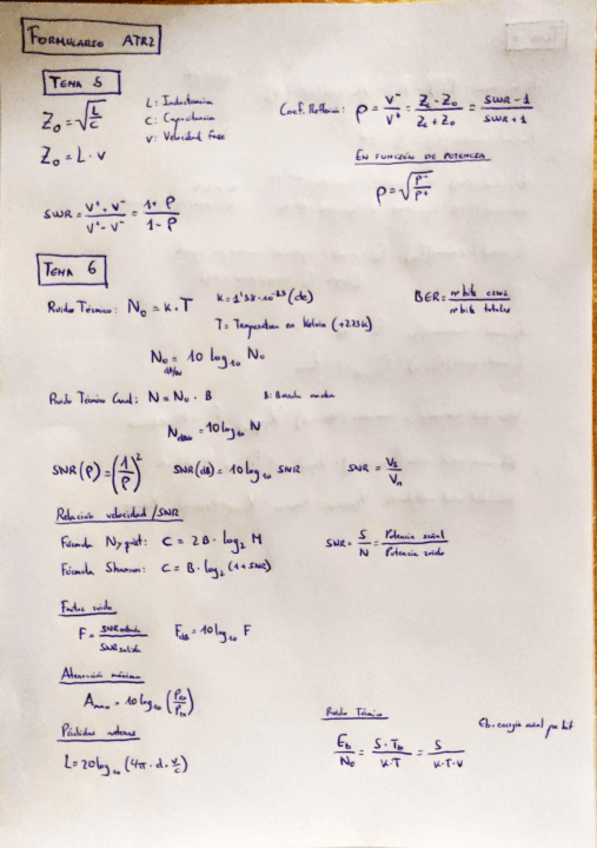 FORMULARIO ATR2
TEMA 5
Z₀ = √(L/C)
L: Inductancia
C: Capacitancia
V: Velocidad fase
Z₀ = L · v
Coef. Reflexión: ρ = V⁻/V⁺ = (Z_L - Z₀)/(Z_L + Z₀) = (SWR - 1)/(SWR + 1)
EN FUNCIÓN DE POTENCIA
ρ = √(P⁻/P⁺)
SWR = (V⁺ + V⁻)/(V⁺ - V⁻) = (1 + ρ)/(1 - ρ)
TEMA 6
Ruido Térmico: N₀ = K · T
K = 1'38 · 10⁻²³ (cte)
T = Temperatura en Kelvin (+273K)
BER = nº bits error/nº bits totales
N₀ dB/W = 10 log₁₀ N₀
Ruido Térmico Canal: N = N₀ · B
B: Banda ancha
N dBW = 10 log₁₀ N
SNR(ρ) = (1/ρ)²
SNR(dB) = 10 log₁₀ SNR
SNR = Vs/Vn
Relación velocidad/SNR
Fórmula Nyquist: C = 2B · log₂ M
Fórmula Shannon: C = B · log₂ (1 + SNR)
SNR = S/N = Potencia señal/Potencia ruido
Factor ruido
F = SNR entrada/SNR salida
F dB = 10 log₁₀ F
Atenuación máxima
A max = 10 log₁₀
Pérdidas
L = 20 log₁₀ (4π · d · v/c)
Ruido Térmico
Eb/N₀ = S · Tb/K·T = S/K·T·V
Eb: energía señal por bit